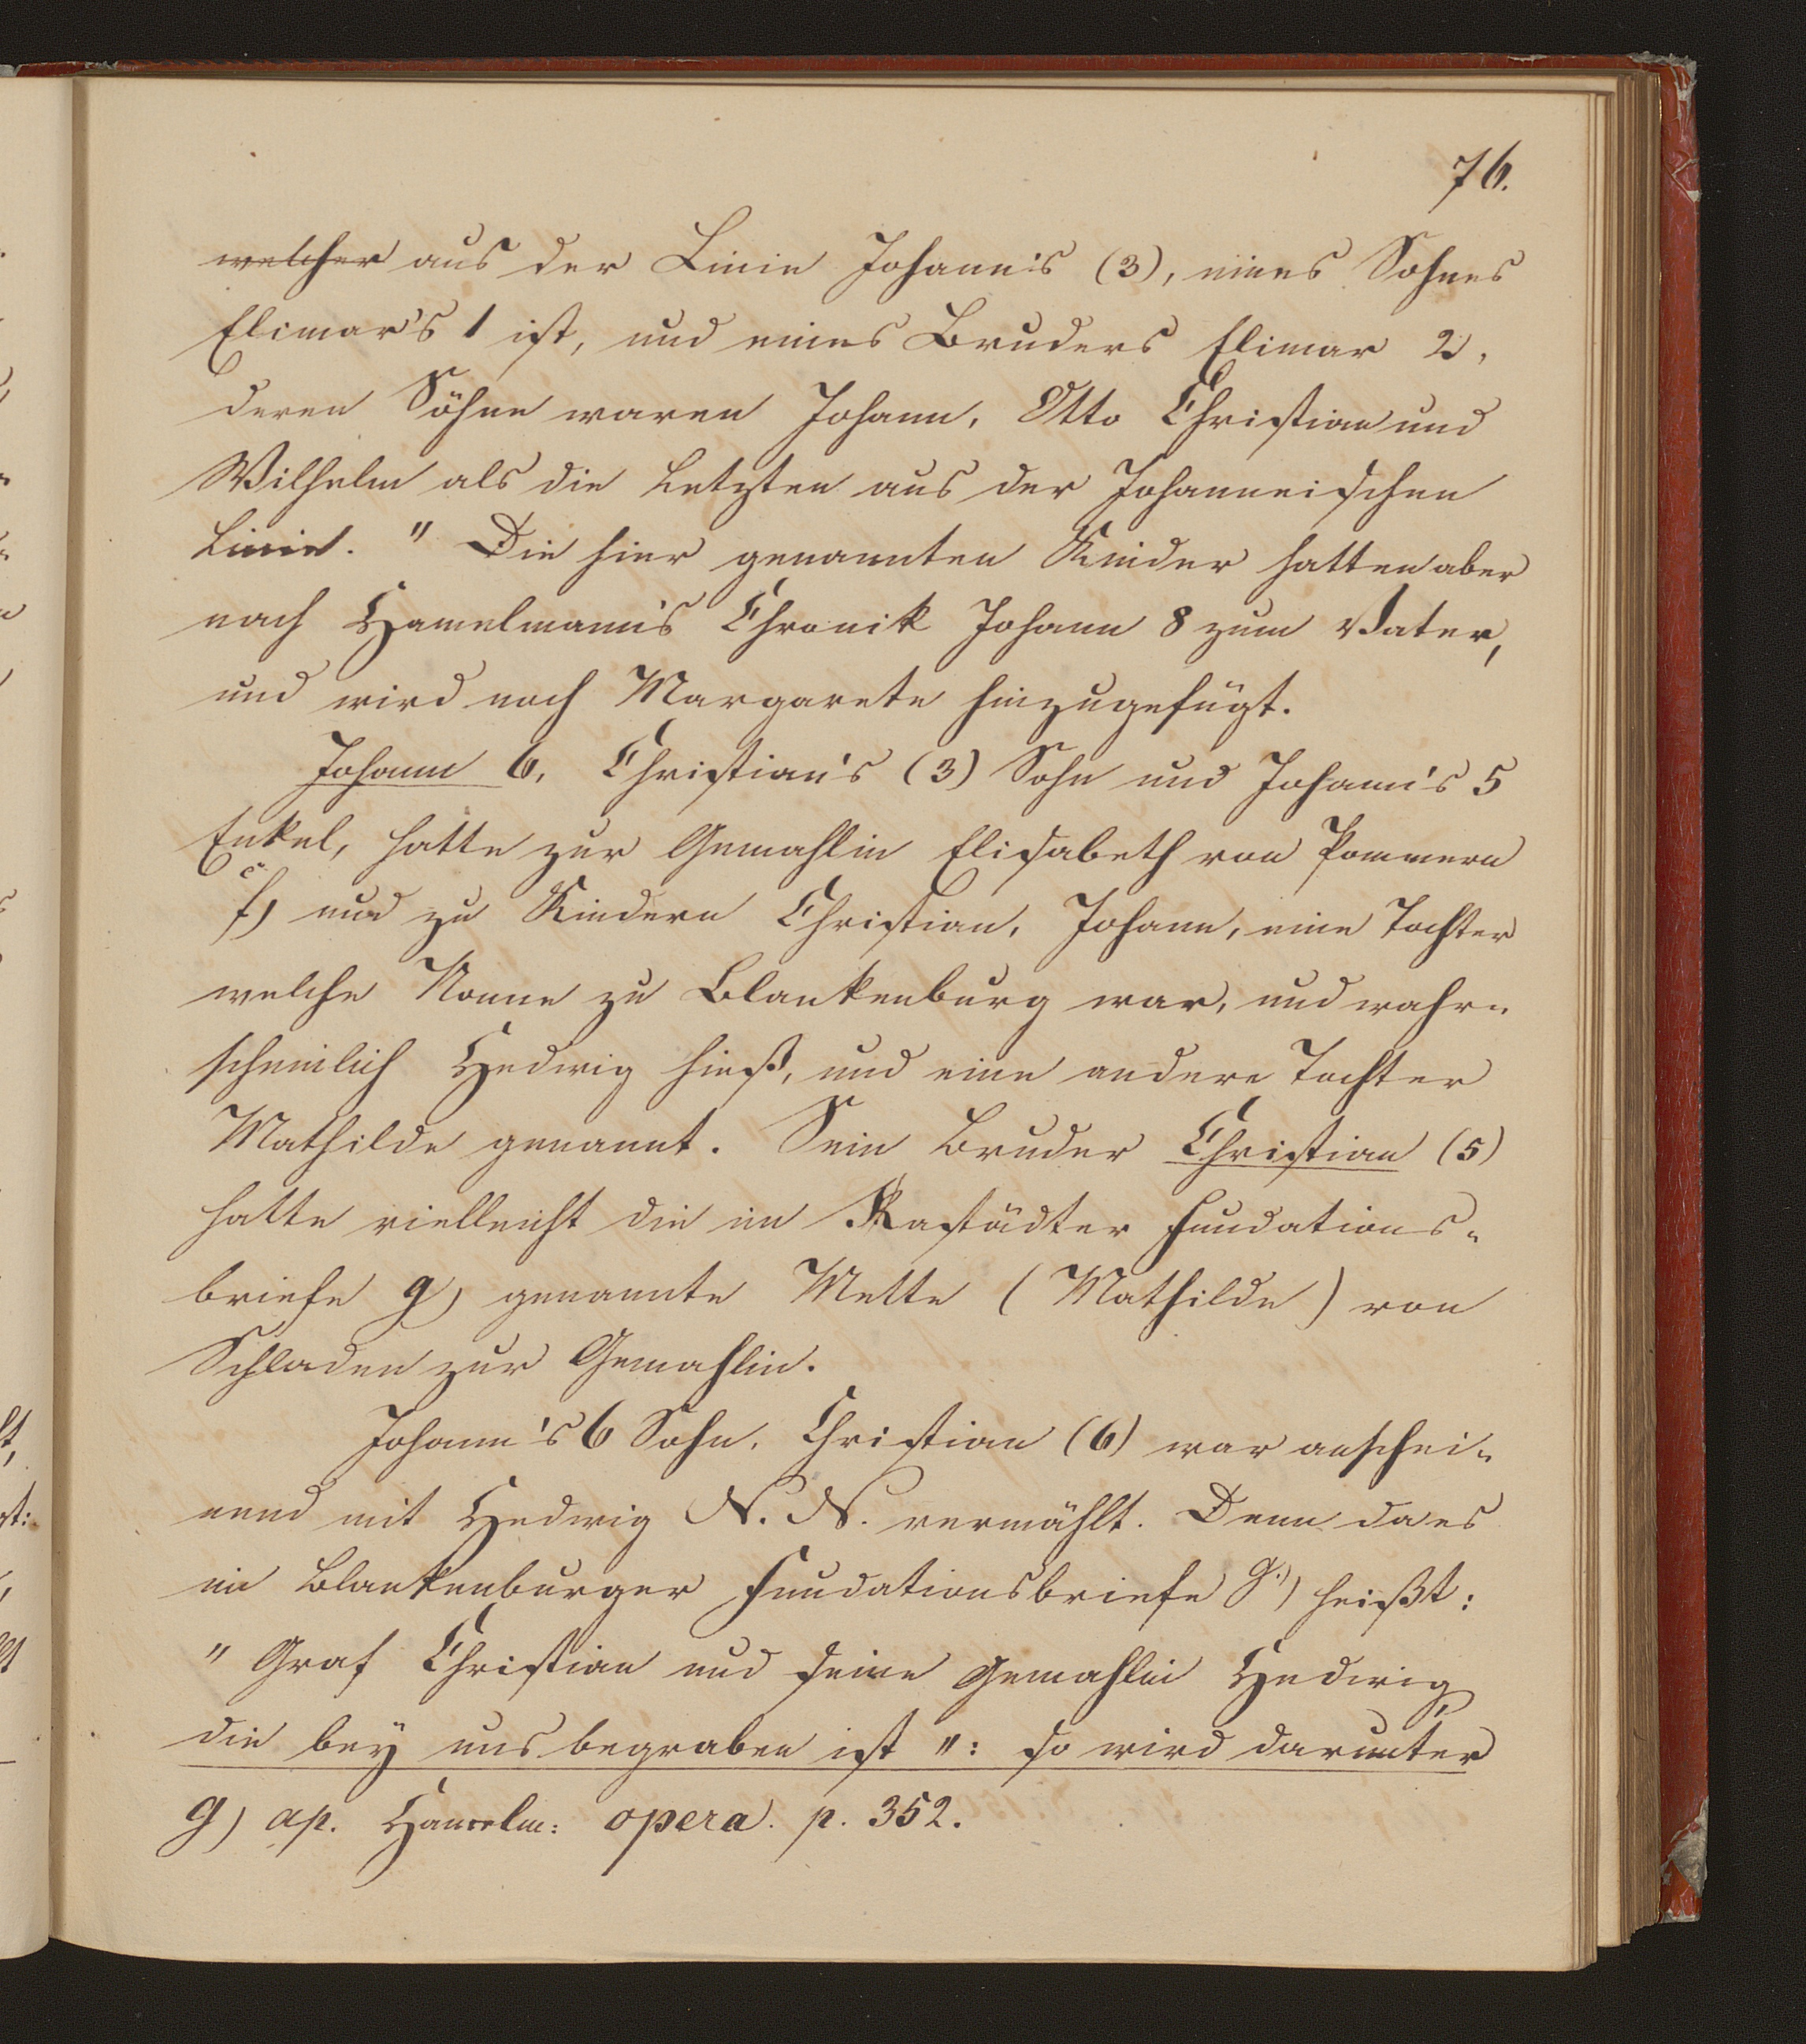 76.
welcher aus der Linie Johann's (3), eines Sohnes
Elimar's 1 ist, und eines Bruders Elimar 2,
deren Söhne waren Johann, Otto Christian und
Wilhelm als die Letzten aus der Johanneischen
Linie. " Die hier genannten Kinder hatten aber
nach Hamelmann's Chronik Johann 8 zum Vater,
und wird noch Margarete hinzugefügt.
Johann 6, Christian's (3) Sohn und Johann's 5
Enkel, hatte zur Gemahlin Elisabeth von Pommern
f) und zu Kindern Christian, Johann, eine Tochter
welche Nonne zu Blankenburg war, und wahr-
scheinlich Hedwig hieß, und eine andere Tochter
Mathilde genannt. Sein Bruder Christian (5)
hatte vielleicht die im Rastädter Fundations-
briefe g) genannte Mette (Mathilde) von
Schladen zur Gemahlin.
Johann's 6 Sohn, Christian (6) war anschei-
nend mit Hedwig N. N. vermählt. Denn da es
im Blankenburger Fundationsbriefe g) heißt:
" Graf Christian und seine Gemahlin Hedwig,
die bey uns begraben ist ": so wird darunter
g) ap. Hamelm: opera. p. 352.